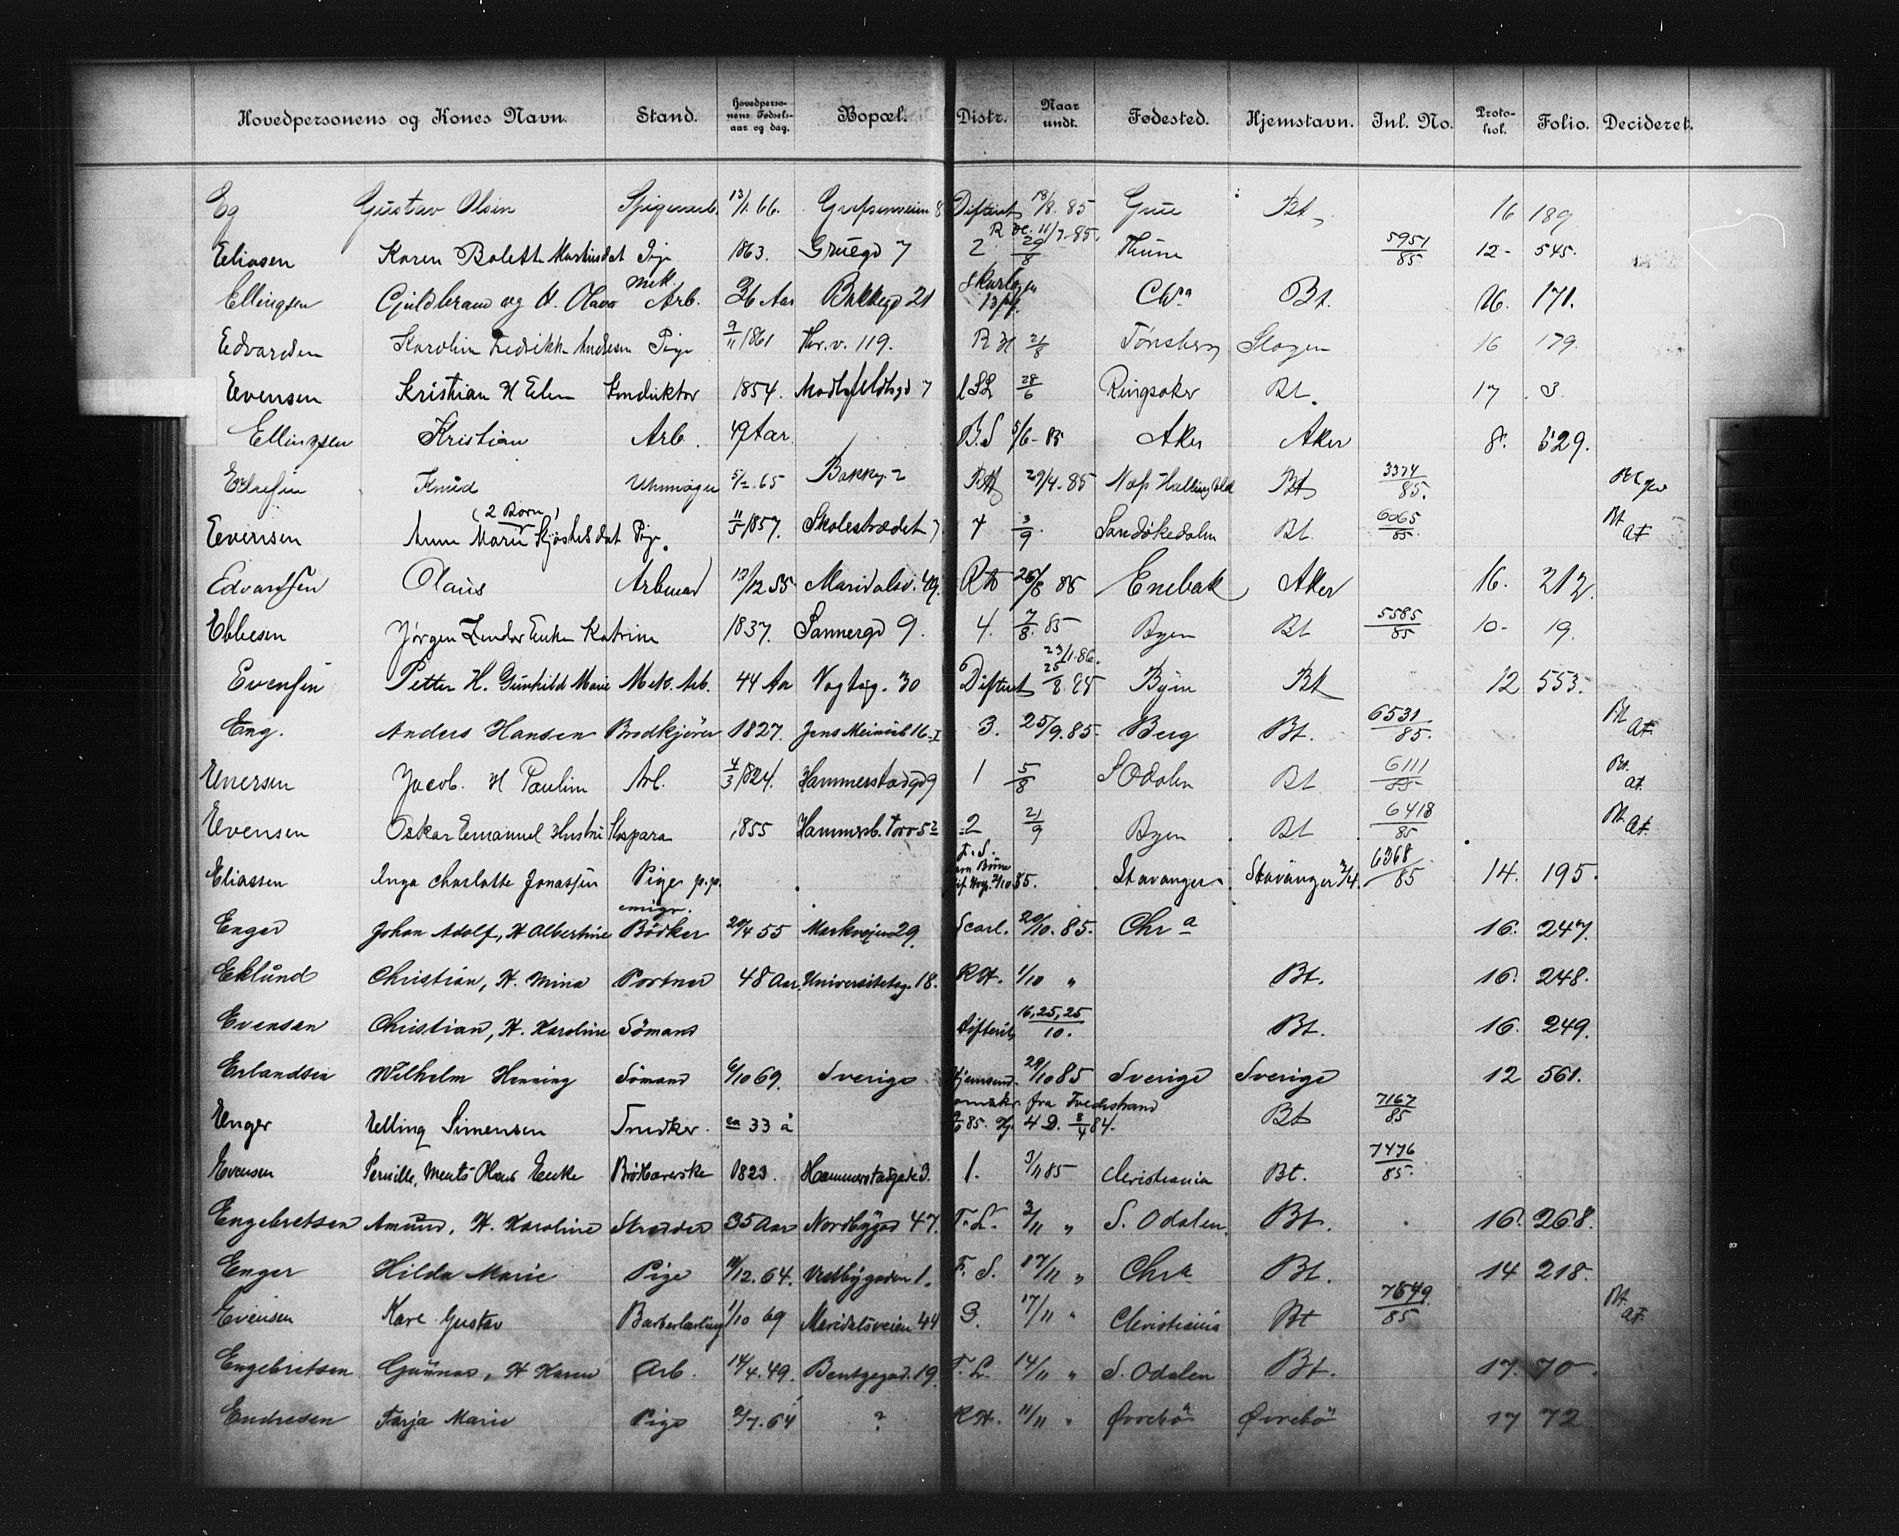 Hovedpersonens og Kones Navn. Stand. Hovedperso-nens Fødsels-aar og dag. Bopæl. Distr. Naar undt. Fødested. Hjemstavn. Inl. No. Proto-kol. Folio. Decideret.
Eg Gustav Olsen 13/1 66. 8 Difterit 18/8. 85 Grue Bt. 16 189
Eliasen Karen Bolette Pige 1863. Gruegd 7 2 29/8 5951/85 12- 545.
Ellingsen og H. Olava Mek. Arb. 36 Aar Bakkegd 21 Chr.a Bt. 16. 171.
Edvardsen Karolin Fredrikke Andresen Pige 9/11 1861 Thr.v. 119. R H 21/8 Tønsberg Slagen 16 179.
Evensen Kristian H Elen Konduktør 1854. 7 28/6 Ringsaker Bt. 17 3
Ellingsen Kristian Arb. 49 Aar. B.S 5/6-85 Aker Aker 8. 529.
Knud Uhrmager 5/2.65 Bakkeg. 2 RH 29/4.85 Bt. 3374/85.
Evensen (2 Børn) Anne Marie Pige. 11/5 1857. Skolestrædet 7 3/9. Sandøkedalen Bt. 6065/85 Bt. at.
Edvardsen Olaus 13/12 55 Maridalsv. RH 26/8 85 Enebak Aker 16. 212.
Ebbesen Jørgen Enke Katrine 1837. Sannergd 9. 4. 7/8. 85 Byen Bt 5585/85 10- 19.
Evensen Petter H. Gunhild Marie Mek. Arb. 44 Aar Vogtsg. 30 Difterit 25/8. 85 23/1.86. Byen Bt 12 553.
Eng. Anders Hansen Brødkjører 1827. 16-I 3. 25/9.85. Berg Bt. 6531/85. Bt. at.
Enersen Jacob. H Pauline Arb. 4/3 1824. Hammerstadgd 9 1 5/8 S Odalen Bt. 6111/85 Bt. at.
Evensen Oskar Emanuel Hustru 1855 Hammersb. Torv 2 21/9 Byen Bt. 6418/85 Bt. at.
Eliassen Inga Charlotte Jonassen Pige p.p. 85. Stavanger. Stavanger 6368/85 14. 195.
Enger Johan Adolf, H Albertine emigr. Bödker 20/4 55 Markvejen 29. Scarl. 20/10. 85. Chr a 16. 247.
Eklund Christian, H. Mina Portner 48 Aar. Universitetsg. 18. RH. 1/10 " Bt. 16. 248.
Evensen Christian, H. Karoline Sömand Difterit 16, 25, 25/10. Bt. 16. 249.
Erlandsen Wilhelm Henning Sömand 6/10 69. Sverige Hjemsend. 20/10 85 Sverige Sverige 12 561.
Enger Elling Simensen Snedker. ca 33 å fra Tvedestrand 4 D. 3/4 84. Bt 7167/85
Evensen Pernille, Ments Olaus Enke 1823. Hammerstadgade 3. 1. 3/11 85 Christiania Bt. 7476/85.
Engebretsen Amund, H. Karoline Skræder 35 Aar Nordbygd 47. F.L. 3/11 " S. Odalen. Bt. 16. 268.
Enger Hilda Marie Pige 12. 64. Vestbygaden 1. F. S. 17/11 " Chr a Bt. 14 218.
Evensen Karl Gustav Barberlærling 1/10 69 Maridalsveien 44 3. 17/11 " Christiania Bt 7549/85 Bt. at.
Engebretsen Gunnar, H Karen Arb. 14/4.49. Bentzegad. 19. F.L. 14/11 " S. Odalen Bt. 17. 70.
Endresen Tarja Marie Pige 2/7.64 ? RH. 11/11 " Øvrebö Øvrebö 17 72